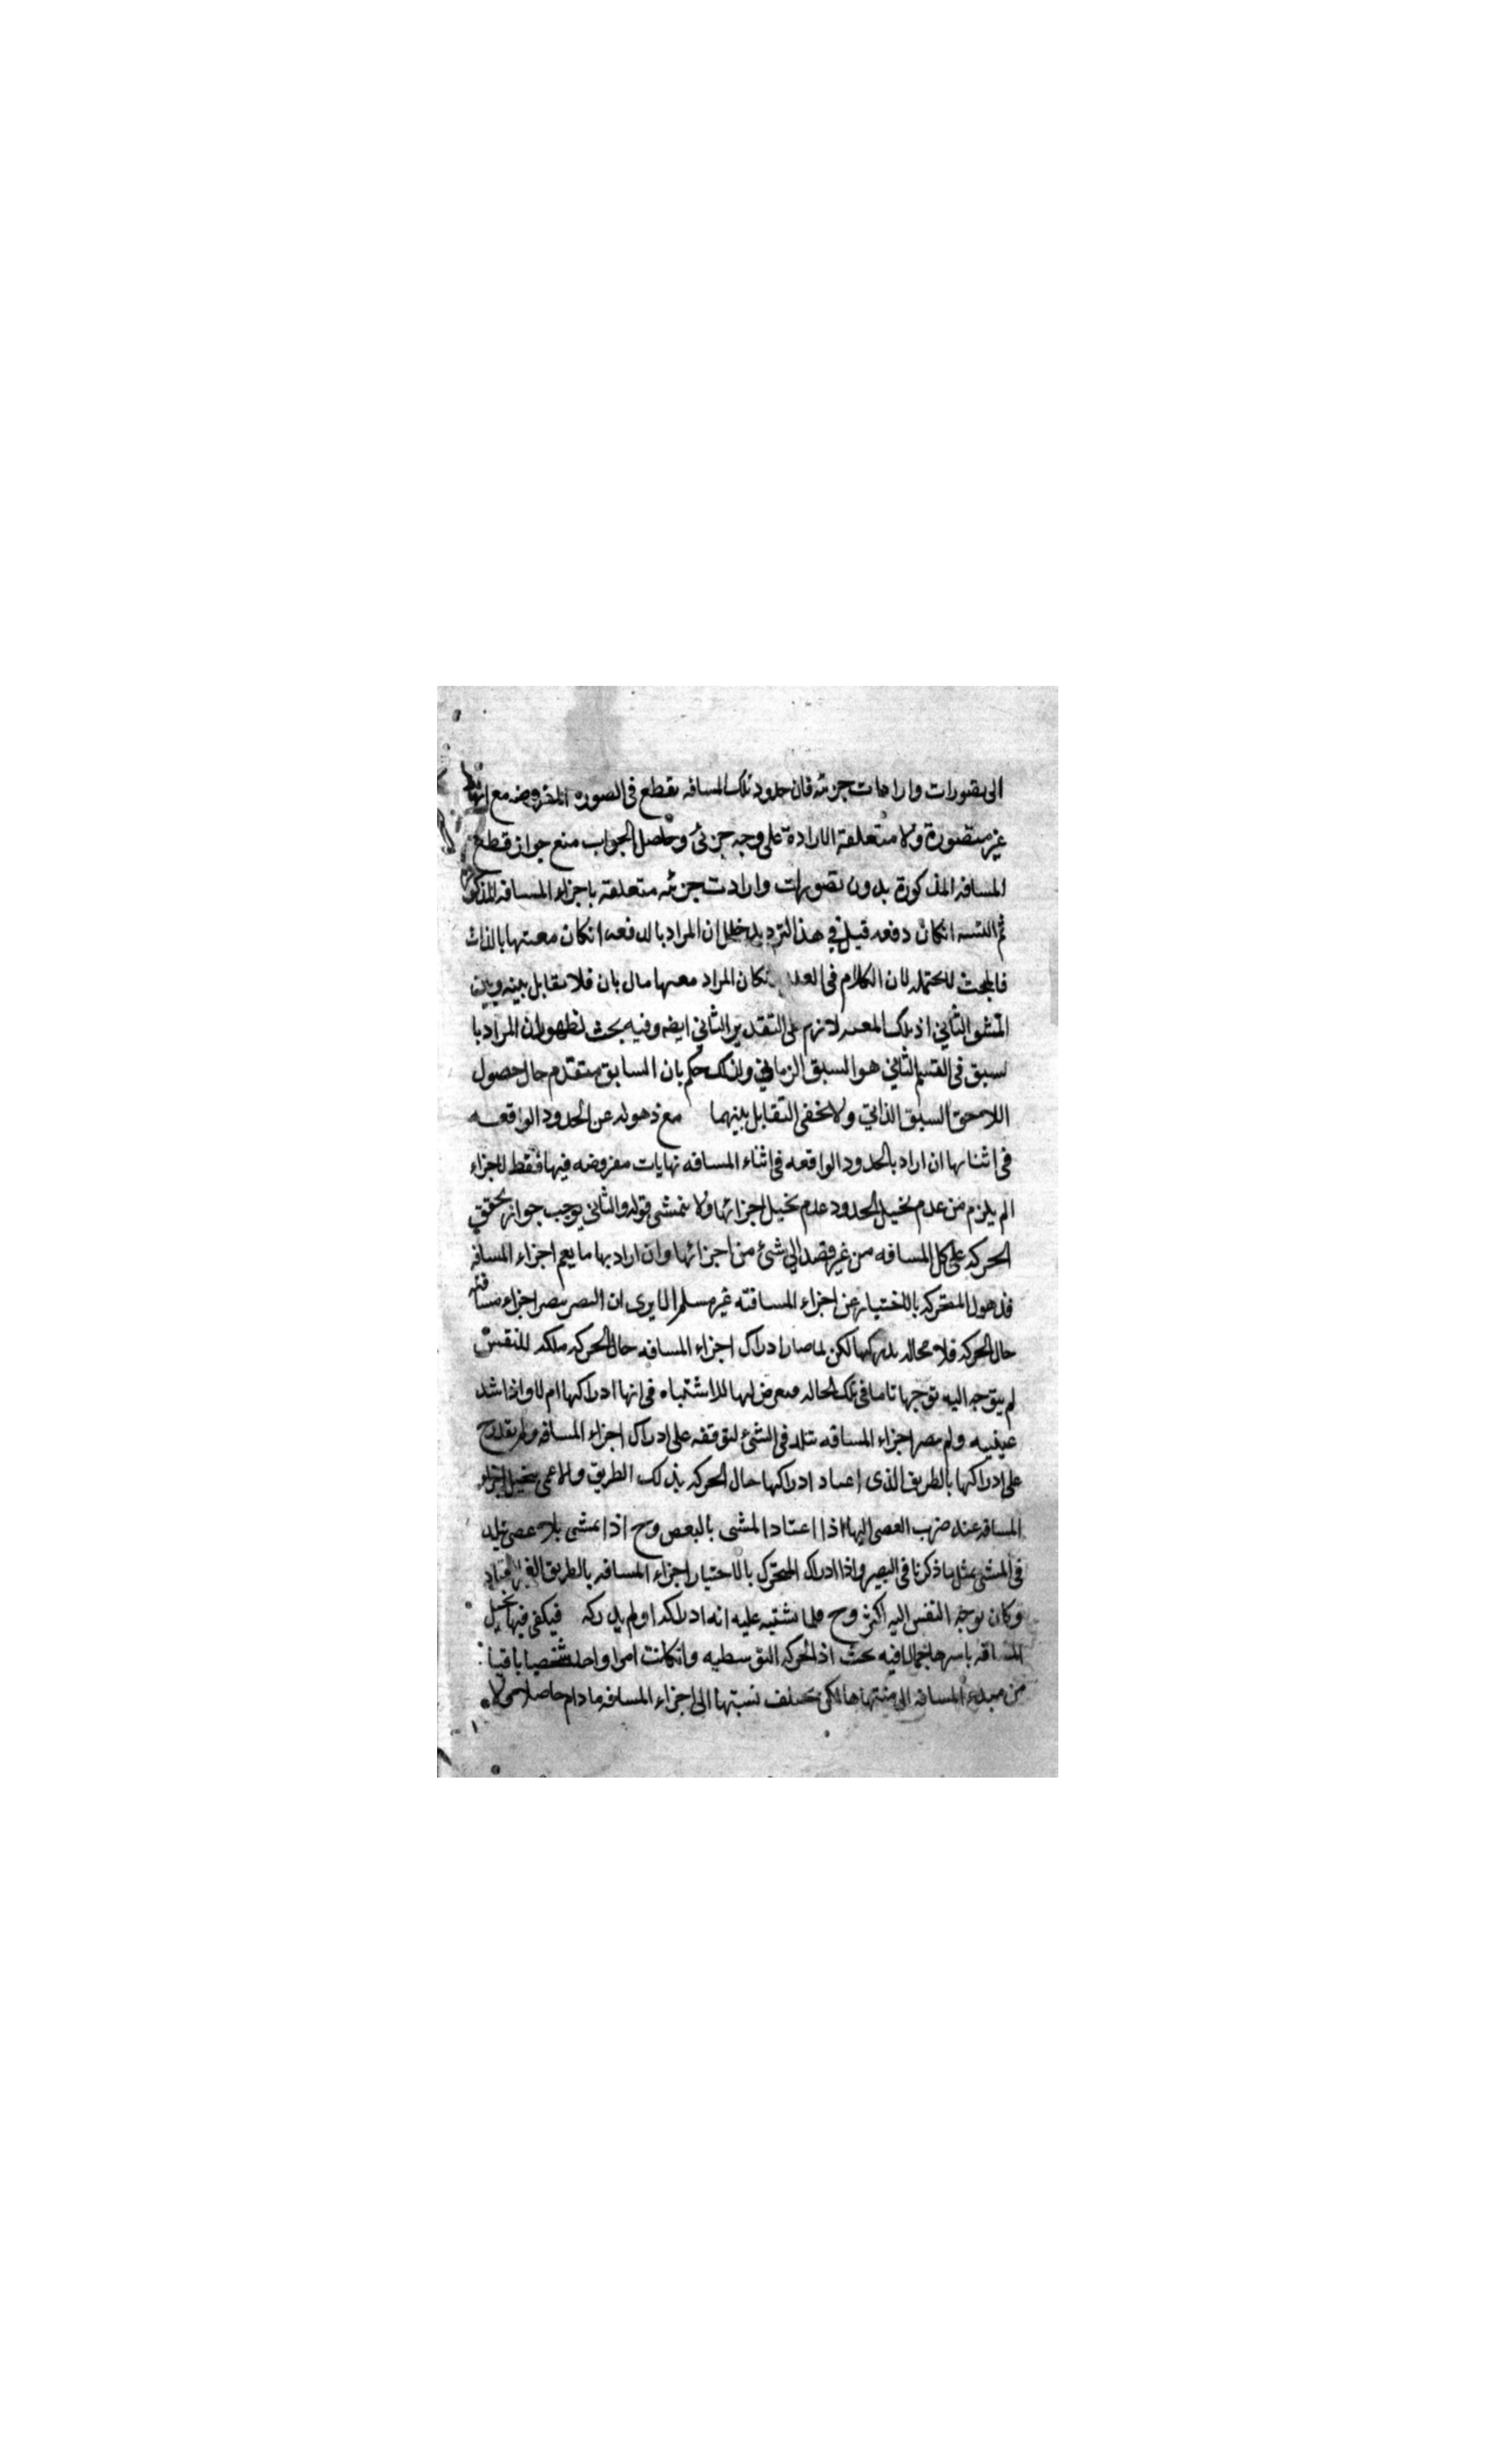 الى تصورات وارادات جزئه فان حدود تلك المسافه يقطع فى الصوره المفروضه مع انها
غير متصورة ولا متعلقة الارادة على وجه جزئى وحاصل الجواب منع جواز قطع
المسافه المذكورة بدون تصورات وارادت جزئه متعلقه باجزاء المسافه المذكو
ثم ان كان دفعه قيل فى هذا الترديد خلل ان المراد بالدفعه انكان معيتها بالذات
فالبحث لا يحتمله لان الكلام فى نكان المراد معيتها مال بان فلا تقابل بينه وبين
الشق الثاني اذ تلك المعيه لازم على التقدير الثاني ايضه وفيه بحث لظهور ان المراد با
لسبق فى القسم الثاني هو السبق الزماني ولذلك حكم بان السابق متقدم حال حصول
اللاحق السبق الذاتي ولا يخفى التقابل بينهما مع ذهوله عن الحدود الواقعه
فى اثنائها ان اراد بالحدود الواقعه فى اثناء المسافه نهايات مفروضه فيها فقط لا جزاء
الم يلزم من عدم تخيل الحدود عدم تخيل اجزائها ولا يتمشى قوله والثانى يوجب جواز تحقق
الحركه على كل المسافه من غير قصد الى شئ من اجزائها وان اراد بها ما يعم اجزاء المسافه
فذهول المتحركه بالاختيار عن اجزاء المسافته غير مسلم الا يرى ان البصير يبصر اجزاء مسافته
حال الحركه فلا محاله يدركها لكن لما صار ادراك اجزاء المسافه حال الحركه ملكه للنفس
لم يتوجه اليه توجها تاما فى تلك الحاله فيعرض لها الاشتباه فى انها ادراكها ام لا واذا شد
عينيه ولم يبصر اجزاء المسافه تبلد فى المشئ لتوقفه على ادراك اجزاء المسافه ولم يقدر ح
على ادراكها بالطريق الذى اعتاد ادراكها حال الحركه بذلك الطريق والاعمى يتخيل اجزاء
المسافه عند ضرب العصى اليها اذا اعتاد المشى بالعصى وح اذا يمشى بلا عصى تبلد
فى المشى بمثل ما ذكرنا فى البصير واذا ادراك المتحرك بالاختيار اجزاء المسافه بالطريق الغير المعتاد
وكان توجه النفس اليه اكثر وح فلما يشتبه عليه انه ادراكه او لم يدركه فيكفى فيها تخيل
المسافه باسرها اجمالا فيه بحث اذ الحركه التوسطيه وانكانت امرا واحدا شخصيا باقيا
من مبدء المسافه الى منتهاها لكن يختلف نسبتها الى اجزاء المسافه ما دام حاصلا